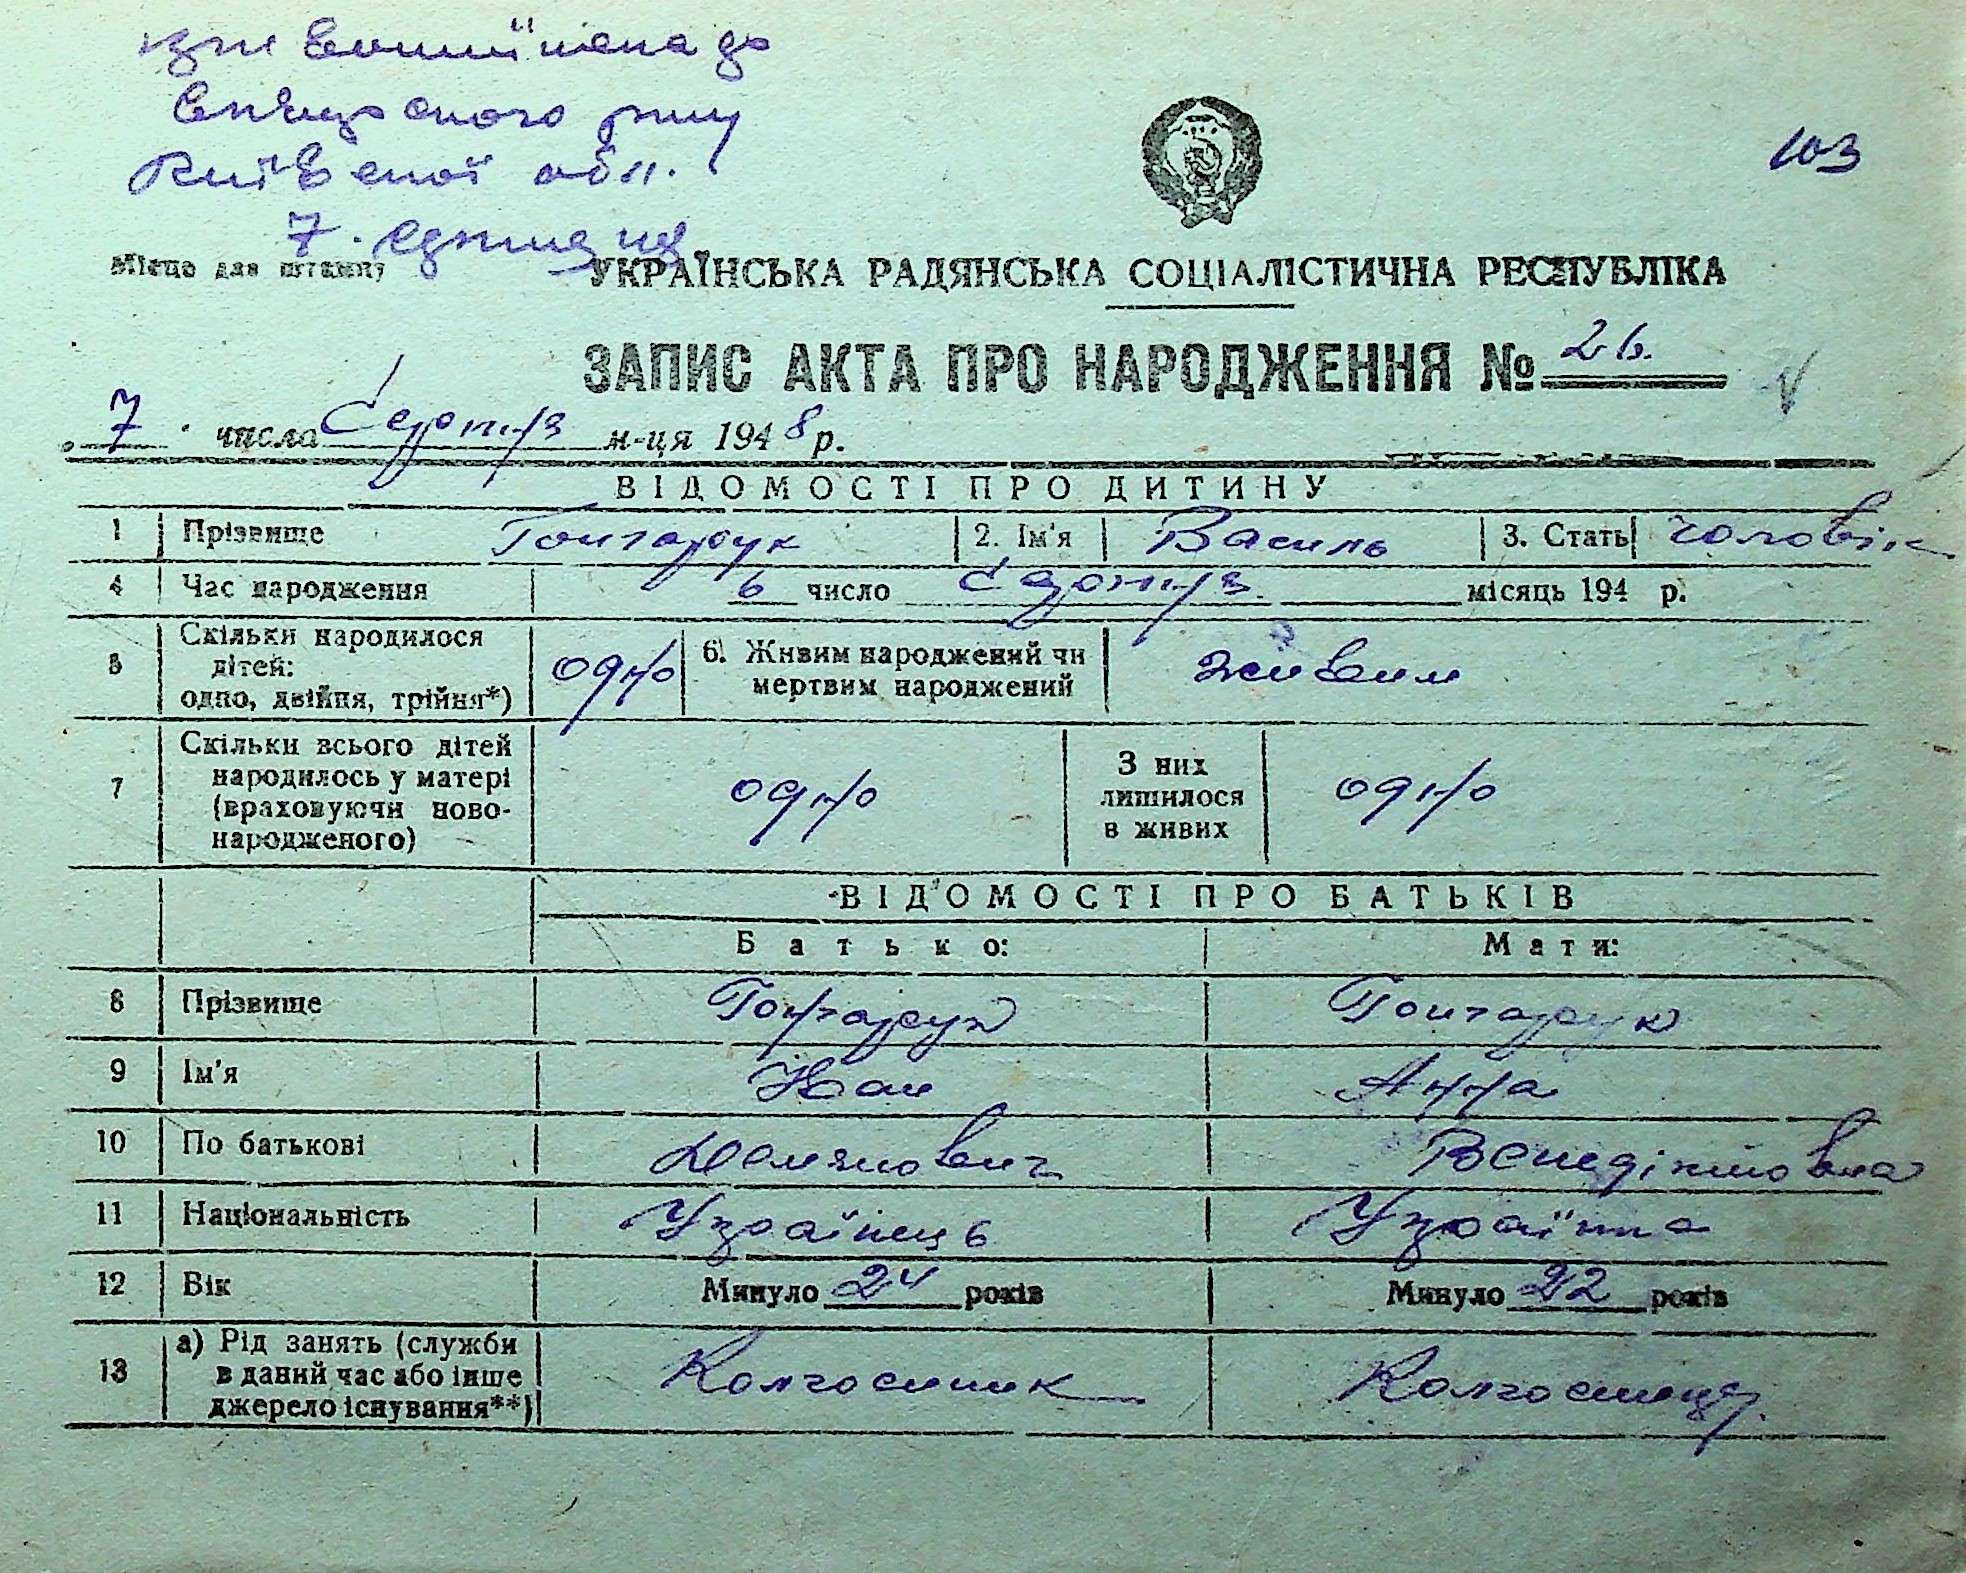 Київської обл.
7.
103
Місце для штампу
УКРАЇНСЬКА РАДЯНСЬКА СОЦІАЛІСТИЧНА РЕСПУБЛІКА
ЗАПИС АКТА ПРО НАРОДЖЕННЯ № 26.
7. числа Серпня м-ця 1948 р.
ВІДОМОСТІ ПРО ДИТИНУ
1 Прізвище Гончарук 2. Ім'я Василь 3. Стать чоловік
4 Час народження 6 число Серпня місяць 194 р.
5 Скільки народилося
дітей:
одно, двійня, трійня*)
одно
6. Живим народжений чи
мертвим народжений
живим
7 Скільки всього дітей
народилось у матері
(враховуючи ново-
народженого)
одно
З них
лишилося
в живих
одно
ВІДОМОСТІ ПРО БАТЬКІВ
Батько: Мати:
8 Прізвище Гончарук Гончарук
9 Ім'я Іван Анна
10 По батькові Демянович Венедіктовна
11 Національність Українець Українка
12 Вік Минуло 24 років Минуло 22 років
13 а) Рід занять (служби
в даний час або інше
джерело існування**)
Колгоспник Колгоспниця